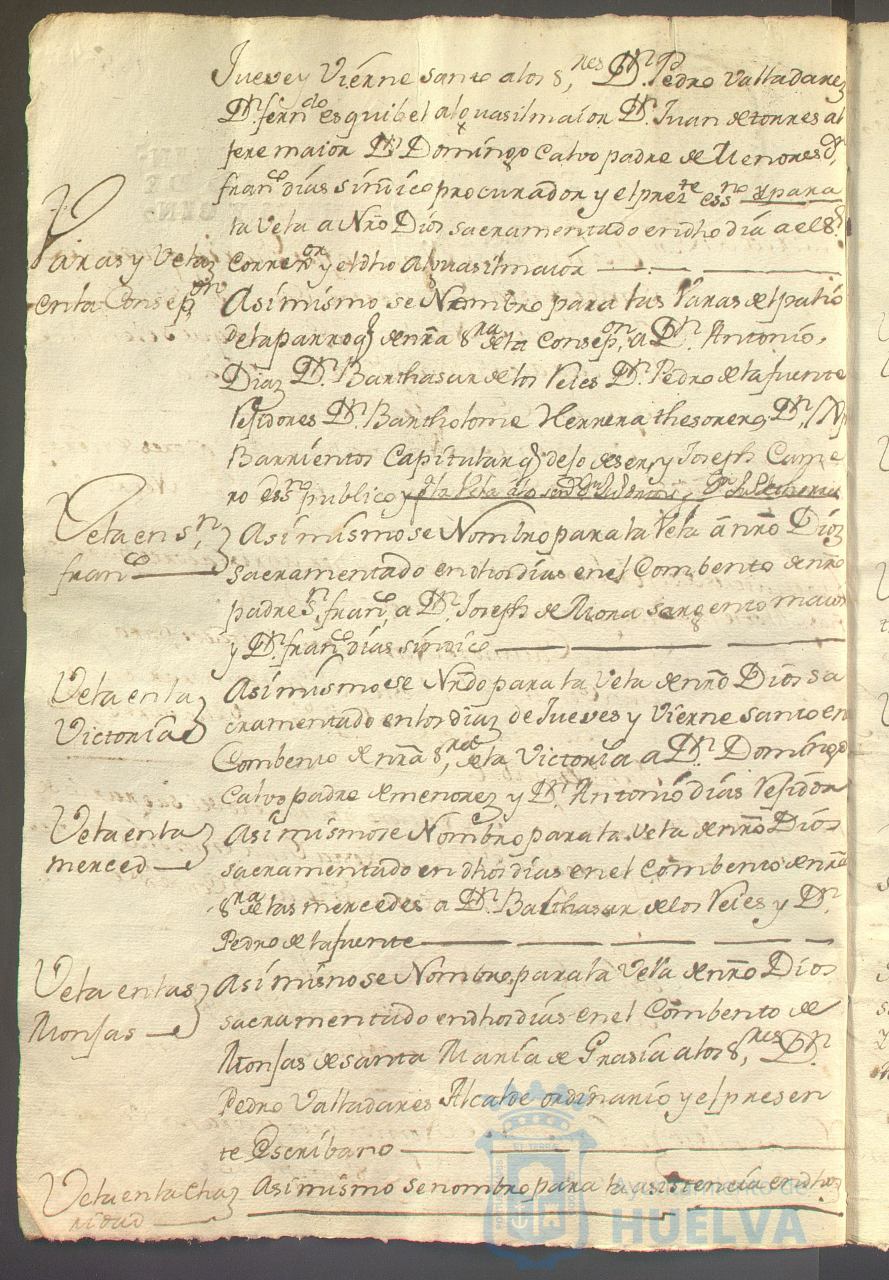 Jueves y Viérne santo a los S.res D.n Pedro Valladares
D.n fern.do esquibel alguasil maior D.n Juan de torres al
fere maior D.n Domingo Calvo padre de Menores D.n
fran.co dias sindico procurador y el pres.te ess.no para
la Vela a Nro Dios sacramentado en dho dia a el S.r
Corre.or y el dho Alguasil maior
Varas y Vela
en la Consep.on
Asimismo se Nombro para las Varas del patio
de la parroq.l de nra S.ra de la Consep.on, a D.n Antonio
Diaz D.n Balthasar de los Reies D.n Pedro de la fuente
Rejidores D.n Bartholome Herrera thesorero, D.n
Barrientos Capitular q.e dejo de ser, y Joseph Came
ro es.no publico y
Vela en S.n
fran.co
Asimismo se Nombro para la Vela a nro Dios
sacramentado en dhos dias en el Combento de nro
padre S.n fran.co, a D.n Joseph de Mora sargento maior
y D.n fran.co dias sindico
Vela en la
Victoria
Asimismo se Nrdo para la Vela de nro Dios sa
cramentado en los diaz de Jueves y Vierne santo en
Combento de nra S.ra de la Victoria a D.n Domingo
Calvo padre de menorez y D.n Antonio dias Rejidor
Vela en la
merced
Asimismo se Nombro para la Vela de nro Dios
sacramentado en dhos dias en el Combento de nra
S.ra de las mercedes a D.n Balthasar de los Reies y D.n
Pedro de la fuente
Vela en las
Monjas
Asi mismo se Nombro para la Vela de nro Dios
sacramentado en dhos dias en el Combento de
Monjas de santa Maria de Grasia a los S.res D.n
Pedro Valladares Alcalde ordinario y el presen
te Escribano
Vela en la Cha
ridad
Asimismo se nombro para la asistencia en dhos
Ayuntamiento de
HUELVA